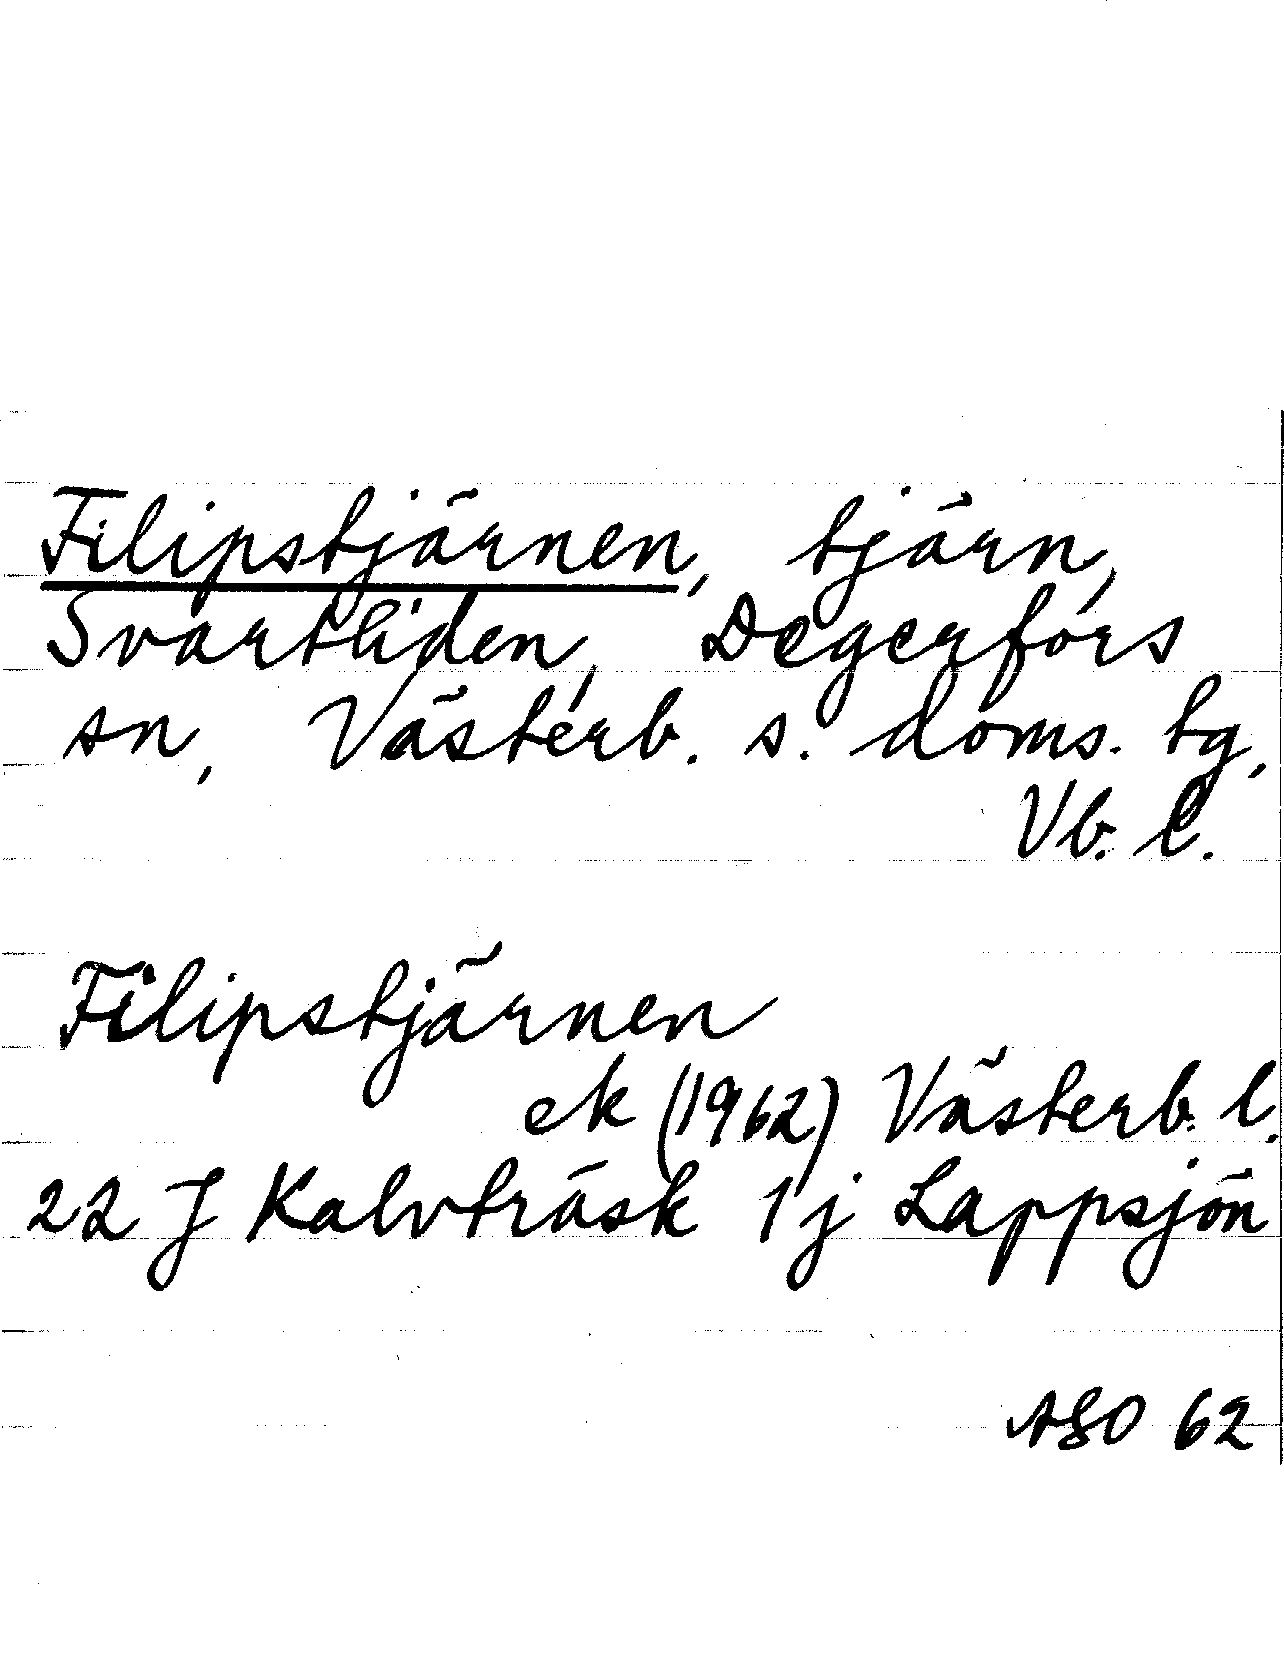 Filipstjärnen, tjärn,
Svartliden, Degerfors
sn, Västerb. s. doms. tg,
Vb. l.
Filipstjärnen
ek (1962) Västerb. l.
22 J Kalvträsk 1 j Lappsjön
ASO 62